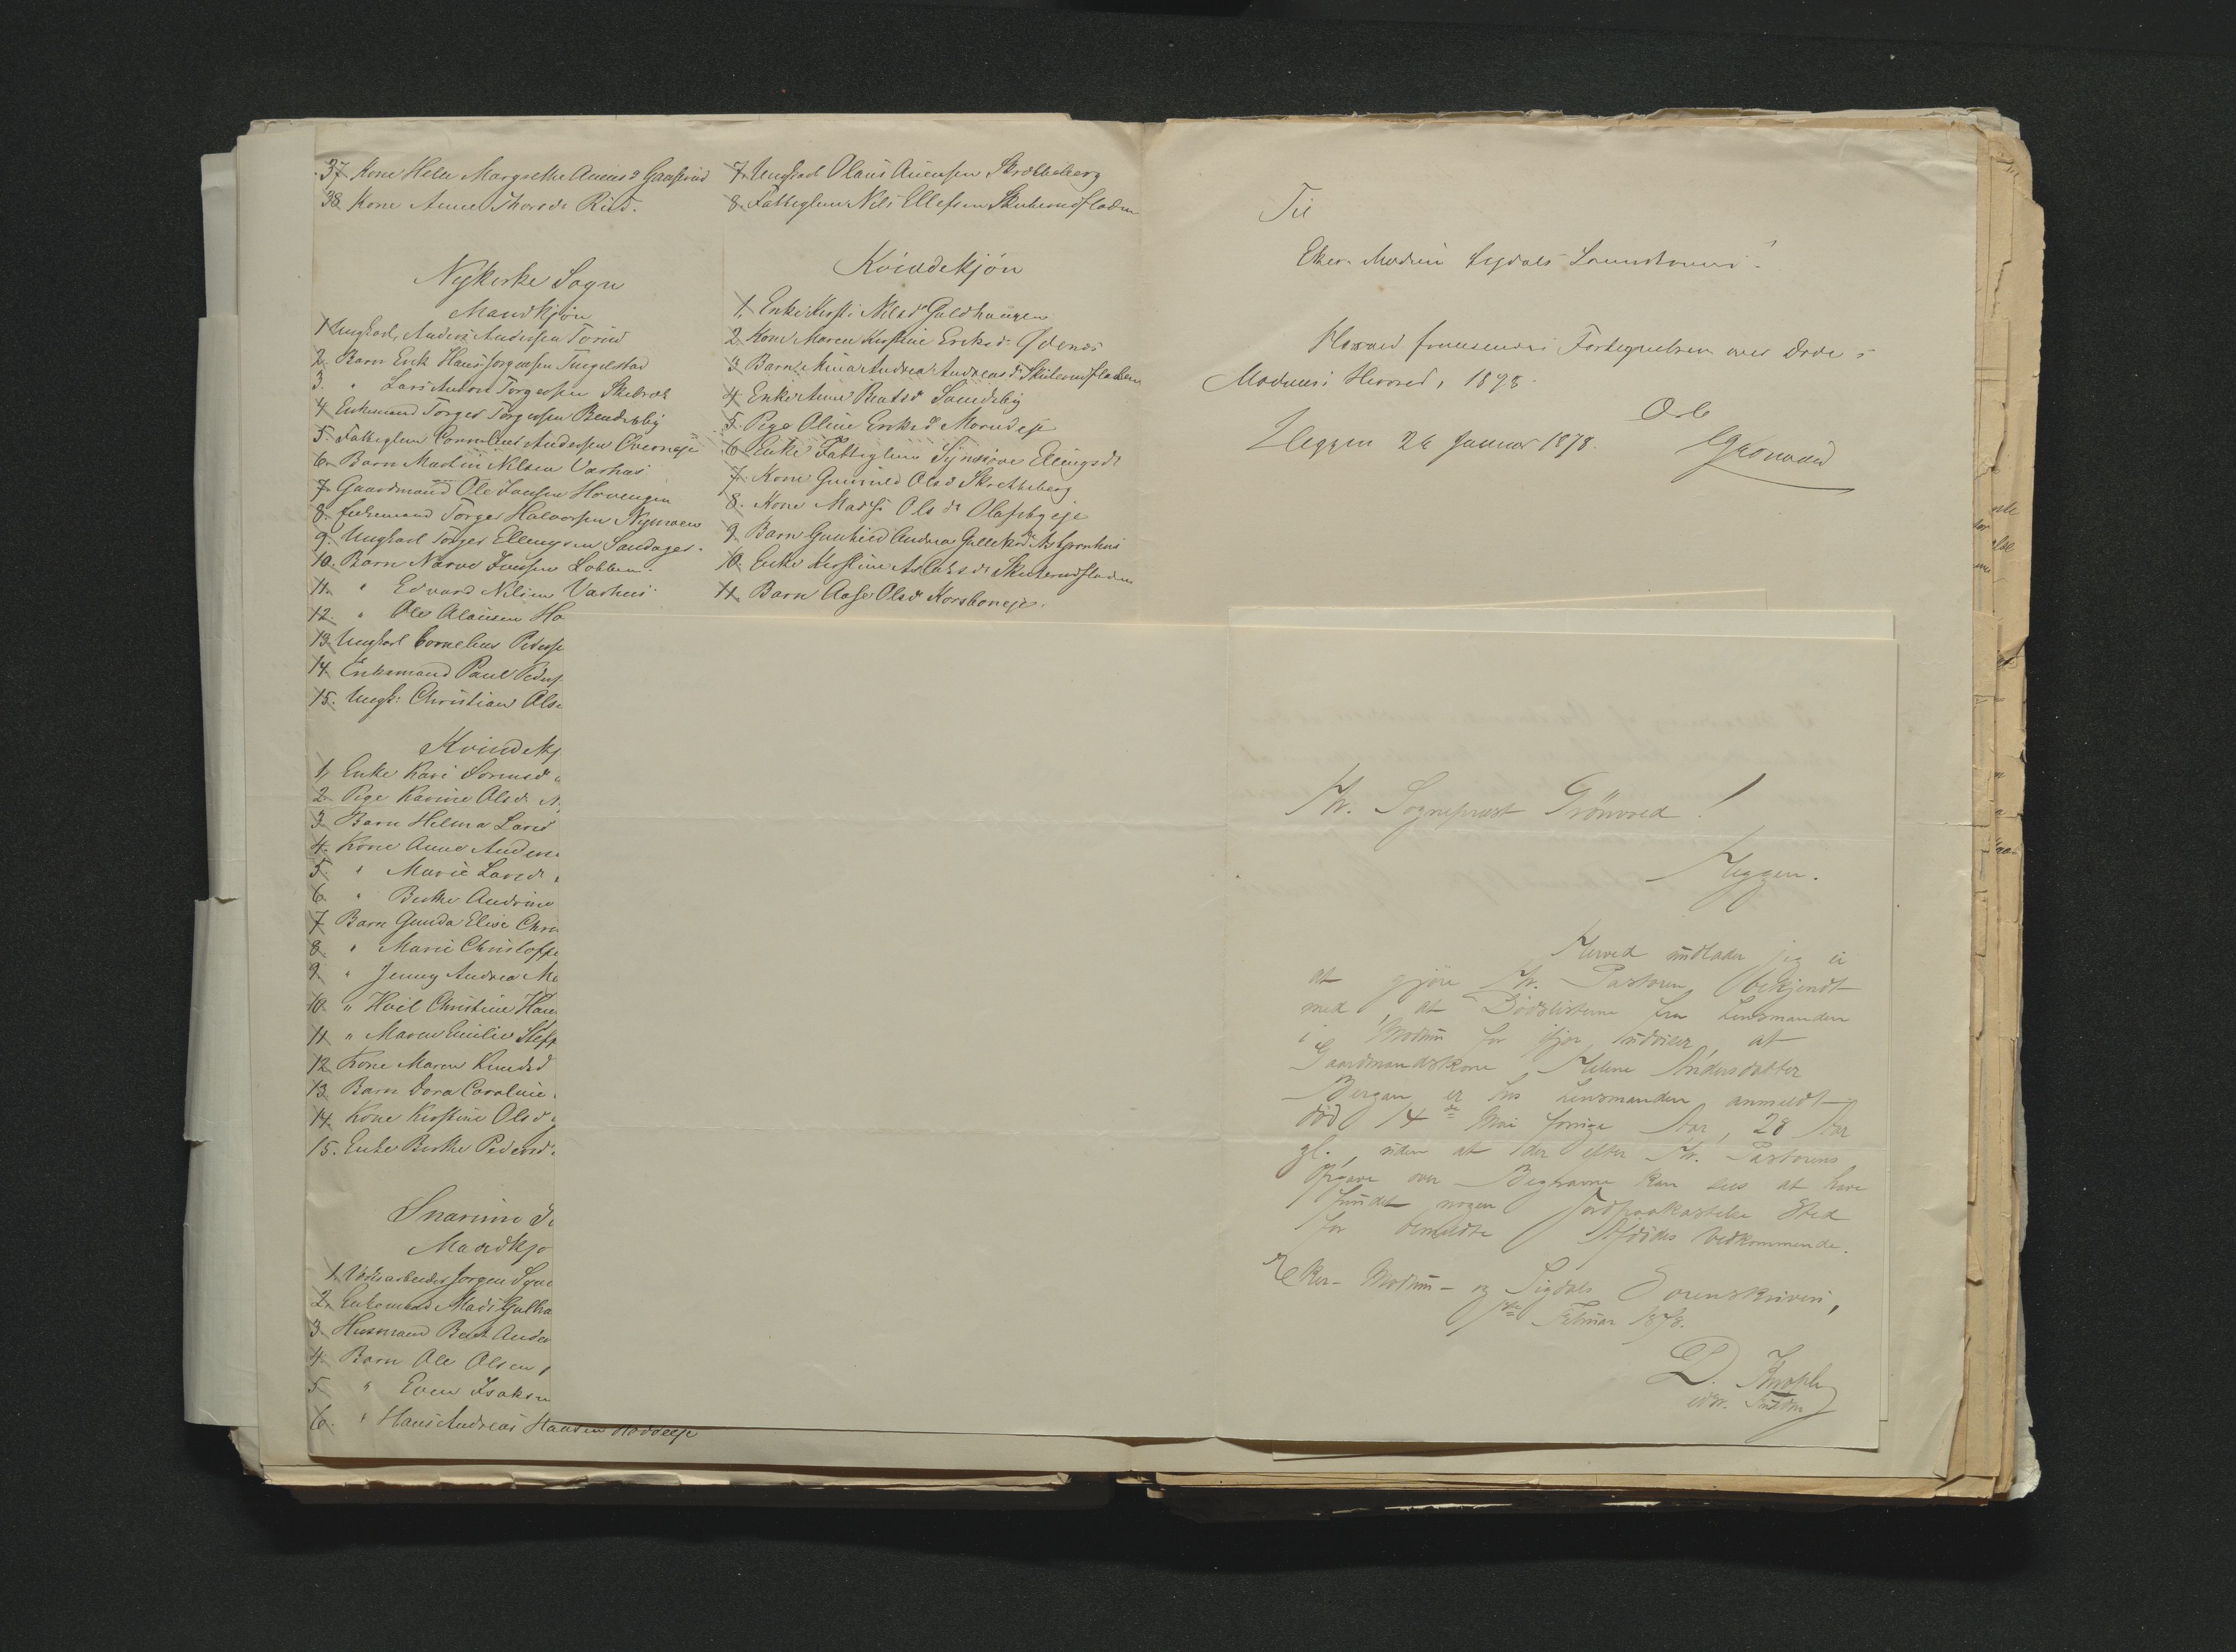 37. Kone Helen Margrethe Amunsd Gaaserud
38. Kone Anne Thorsd. Rud.
Nykirke Sogn
Mandkjøn
1 Ungkarl, Anders Andersen
2. Barn Erik Hans Jørgensen Tingelstad
3. " Lars Anton Torgersen
4 Enkemand Torger Torgersen Bendikby
5. Fattiglem Cornelius Andersen
6. Barn Martin Nilsen Varhus
7. Gaardmand Ole Jensen Hovengen
8. Enkemand Torger Halvorsen Nymoen
9. Ungkarl Torger Ellingsen Sandager.
10. Barn Narve Jensen Lobben.
11. " Edvard Nilsen Varhus
12. " Ole Olausen Ho
13. Ungkarl Cornelius Peders
14. Enkemand Paul Peders
15. Ungk: Christian Ols
Kvindekj
1, Enke Kari Sorensd
2 Pige Karine Olsd. N
3 Barn Helma Larsd
4. Kone Anne Anders
5. " Marie Larsd
6. " Berthe Andrine
7 Barn Gunda Elise Chri
8. " Marie Christoffe
9. " Jenny Andrea Ma
10. " Hvil Christine Han
11. " Maren Emilie Steff
12 Kone Maren Knudsd
13. Barn Dora Caroline
14. Kone Kirstine Olsd
15. Enke Berthe Pedersd.
Snarum So
Mandkjø
1. Veiarbeider Jørgen Syve
2, Enkemand Mads Gulbra
3. Husmand Bent Ander
4. Barn Ole Olsen
5 " Even Isaksen
6. " Hans Andreas Hansen
7. Ungkarl Olaus Amensen Skretteberg
8. Fattiglem Nils Ellefsen Skuterudfladen
Kvindekjøn
1. Enke Kirsti Nilsd. Guldhaugen
2. Kone Maren Kirstine Eriksd.
3 Barn Mina Andrea Andreasd. Skuterudfladen
4. Enke Anne Beatsd Sundsby
5. Pige Oline Eriksd
6 Enke Fattiglem Synnøve Ellingsd.
7. Kone Gunnild Olsd Skretteberg
8. Kone Olsdr. Olafsbyeje
9 Barn Gunhild Andrea
10. Enke Kirstine Aslaksdr. Skuterudfladen
11. Barn Aase Olsd Korsboneje.
Til
Eker Modum Sigdals
Hoved fremsendes Fortegnelsen over Døde i
Modums Herred, 1878.
Heggen 26 Januar 1878.
Grønvold
Hr. Sogneprest Grönvold!
Heggen.
Herved undlader jeg ei
at gjöre Hr. Pastoren bekjendt
med, at Dödslisterne fra Lensmanden
i Modum for ifjor udviser, at
Gaardmandskone Helene Andersdatter
Bergan er hos Lensmanden anmeldt
död 14de Mai forrige Aar, 28 Aar
gl., uden at der efter Hr. Pastorens
Opgave over Begravne kan sees at have
fundet nogen Jordpaakastelse Sted
for bemeldte Afdödes Vedkommende.
Eker- Modum- og Sigdals Sorenskriveri,
Februar 1878.
D.